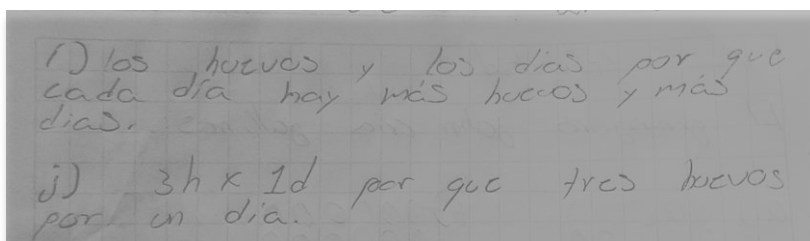 i) los huevos y los dias por que
cada día hay más huevos y más
dias.
j) 3h x 1d por que tres huevos
por un dia.